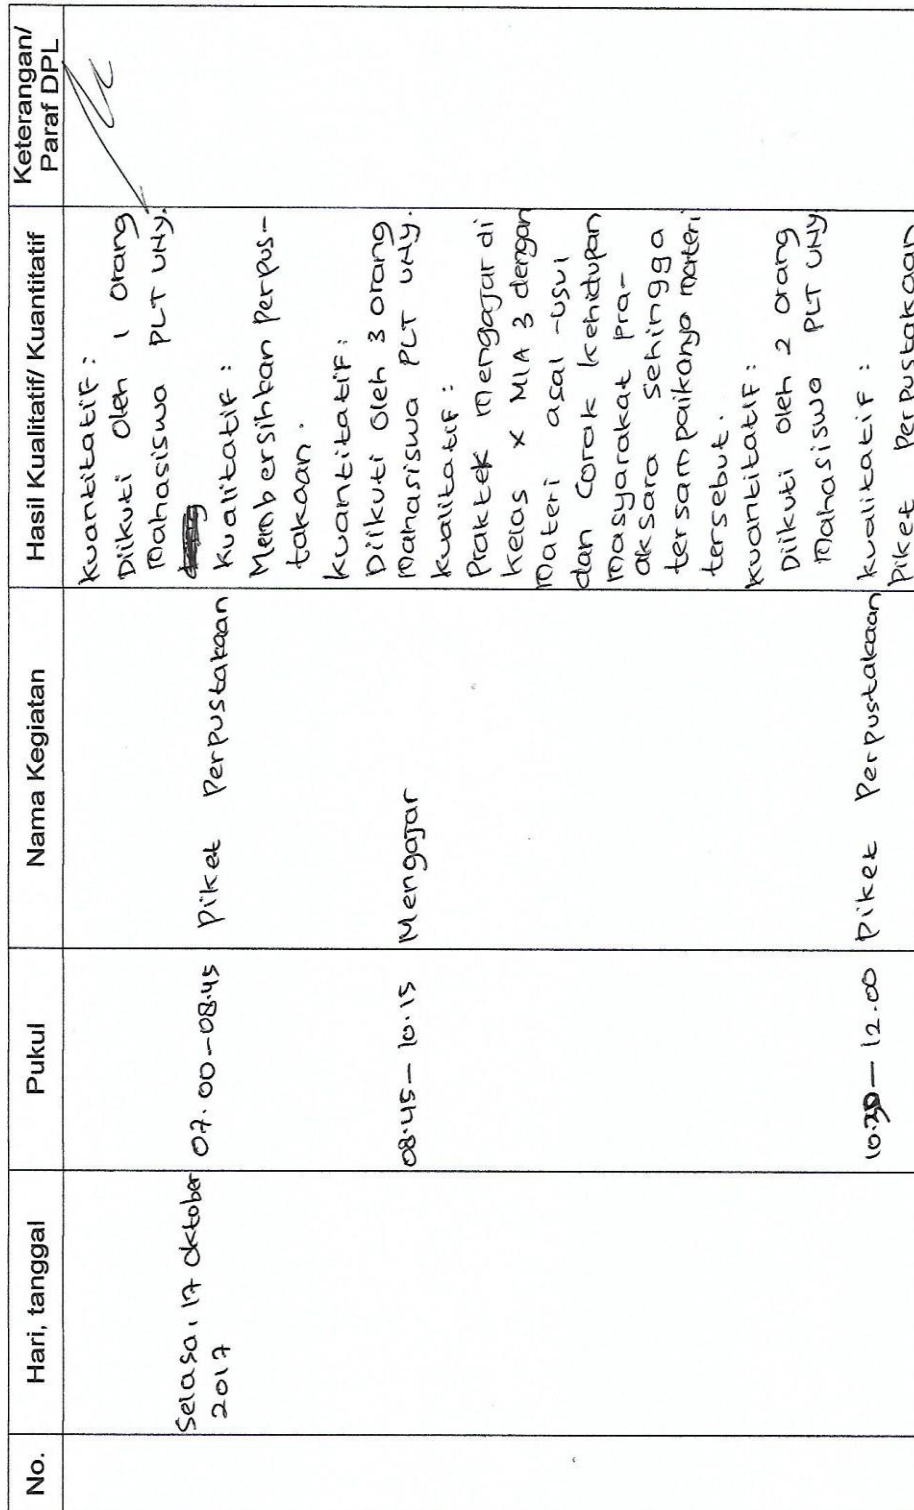 No.
Hari, tanggal
Pukul
Nama Kegiatan
Hasil Kualitatif/ Kuantitatif
Keterangan/
Paraf DPL
kuantitatif :
Diikuti oleh 1 orang
Mahasiswa PLT UNY.
Selasa, 17 Oktober
2017
07.00-08.45
Piket Perpustakaan
kualitatif :
Membersihkan Perpus-
takaan.
kuantitatif :
Diikuti oleh 3 orang
Mahasiswa PLT UNY.
08.45 - 10.15
Mengajar
kualitatif :
Praktek Mengajar di
kelas X MIA 3 dengan
Materi asal-usul
dan Corak kehidupan
Masyarakat pra-
aksara sehingga
tersampaikanya materi
tersebut.
kuantitatif :
Diikuti oleh 2 orang
Mahasiswa PLT UNY
10.30 - 12.00
Piket Perpustakaan
kualitatif :
Piket Perpustakaan